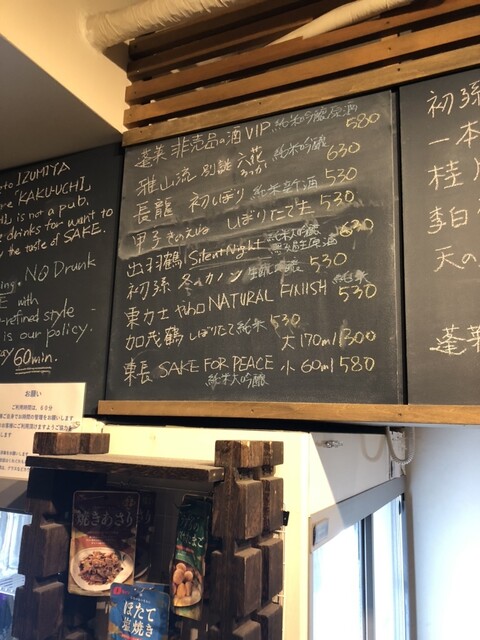 to IZUMIYA
"KAKU-UCHI"
is not a pub.
drinks for want to
the taste of SAKE.
NO Drunk
with
-refined style
is our policy.
60min.
蓬莱 非売品の酒VIP 純米吟醸原酒 580
雅山流 別誂 六花 純米吟醸 630
長龍 初しぼり 純米新酒 530
甲子 きのえね しぼりたて生 530
出羽鶴 Silent Night 純米大吟醸 630
初孫 冬のカノン 生酛吟醸 530
東力士 NATURAL FINIISH 純米 530
加茂鶴 しぼりたて純米 530 大170ml 1300
東長 SAKE FOR PEACE 小60ml 580
純米大吟醸
初孫
一本
桂月
李白
天の
蓬莱
お願い
ご利用時間は、60分
焼きあさり
ほたて
塩焼き